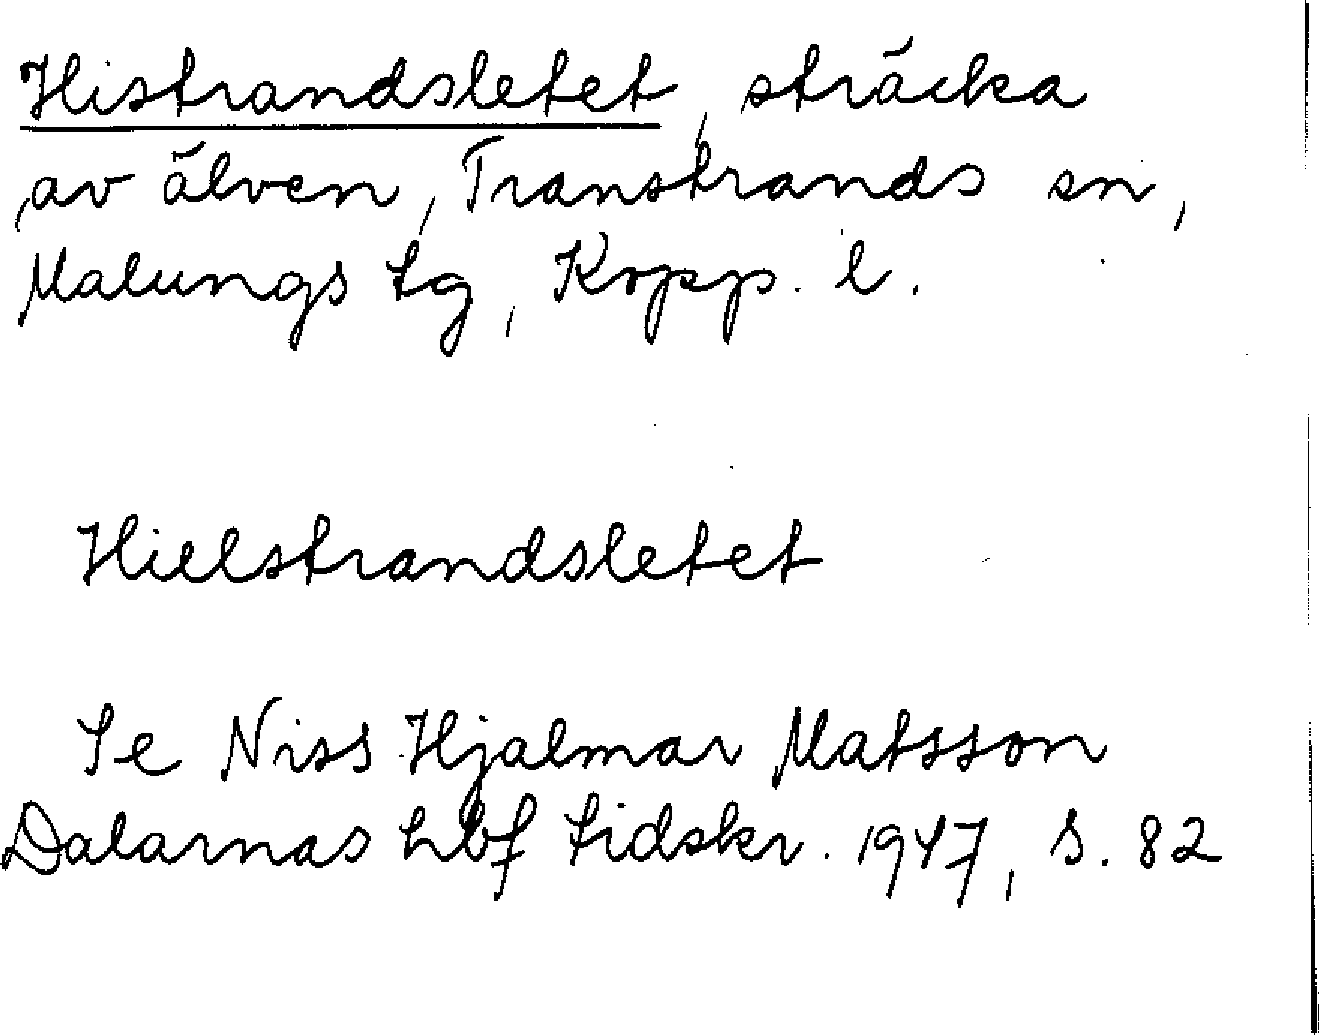 Histrandsletet, sträcka
av älven, Transtrands sn,
Malungs tg, Kopp. l.
Hielstrandsletet
Se Niss Hjalmar Matsson
Dalarnas hbf tidskr. 1947, S. 82